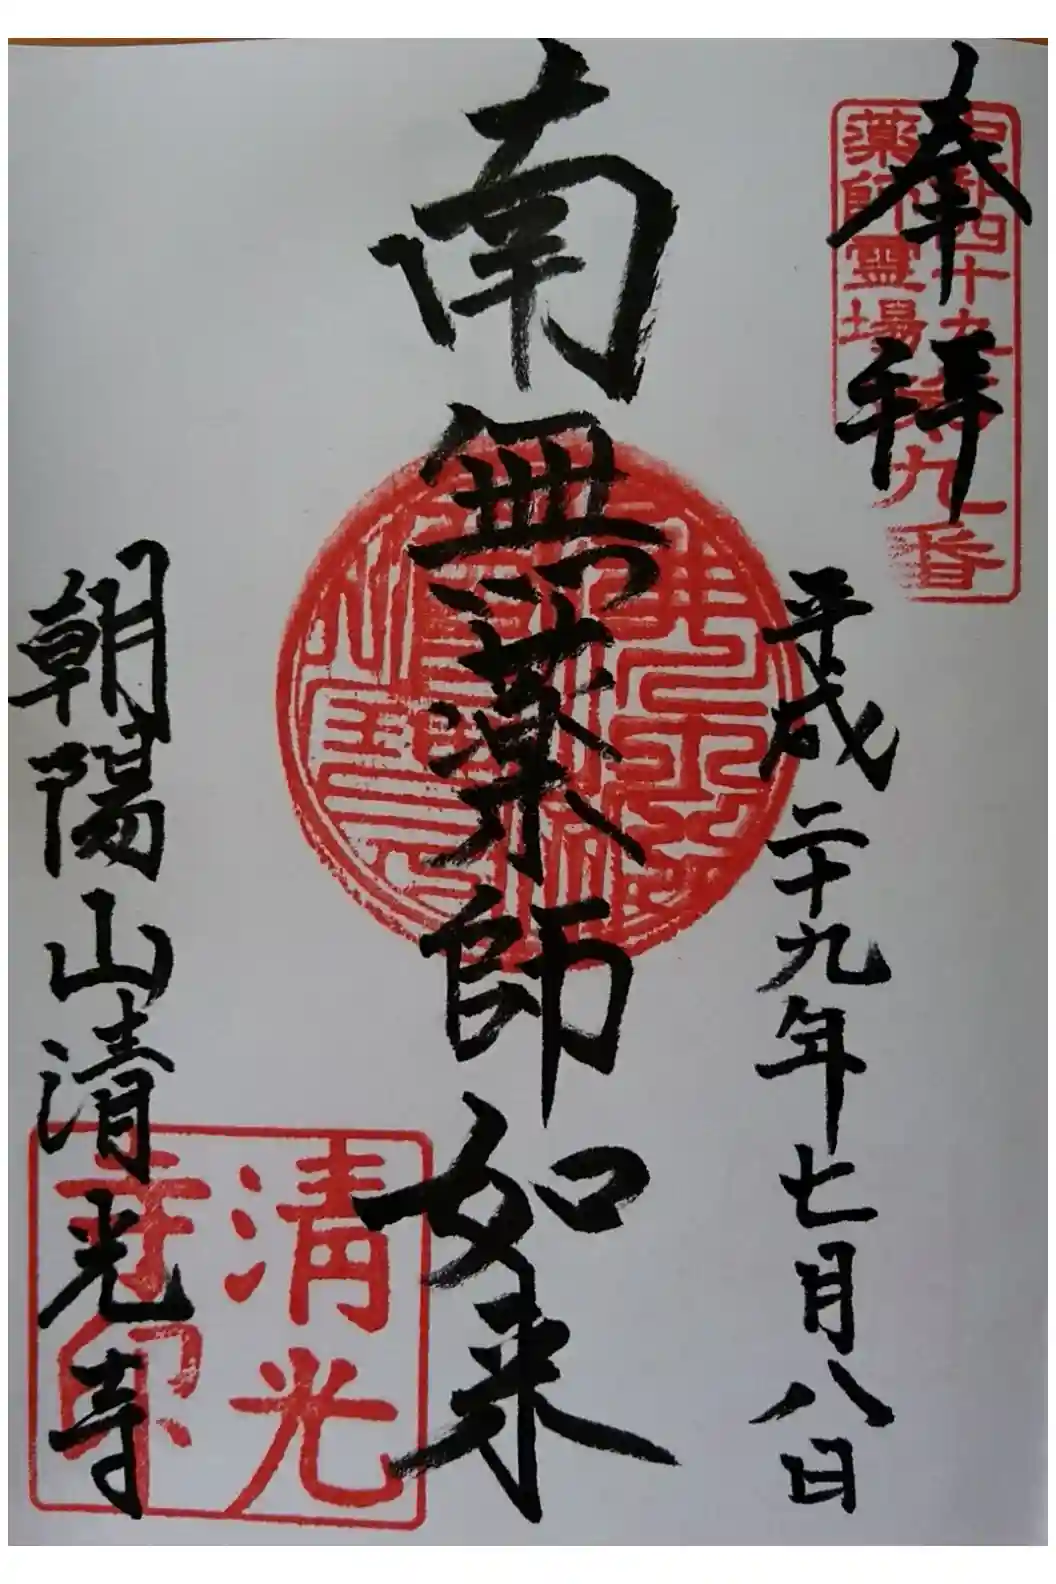 奉拝
中部四十九
薬師霊場第九番
平成二十九年七月八日
南無薬師如来
朝陽山清光寺
清光
寺印